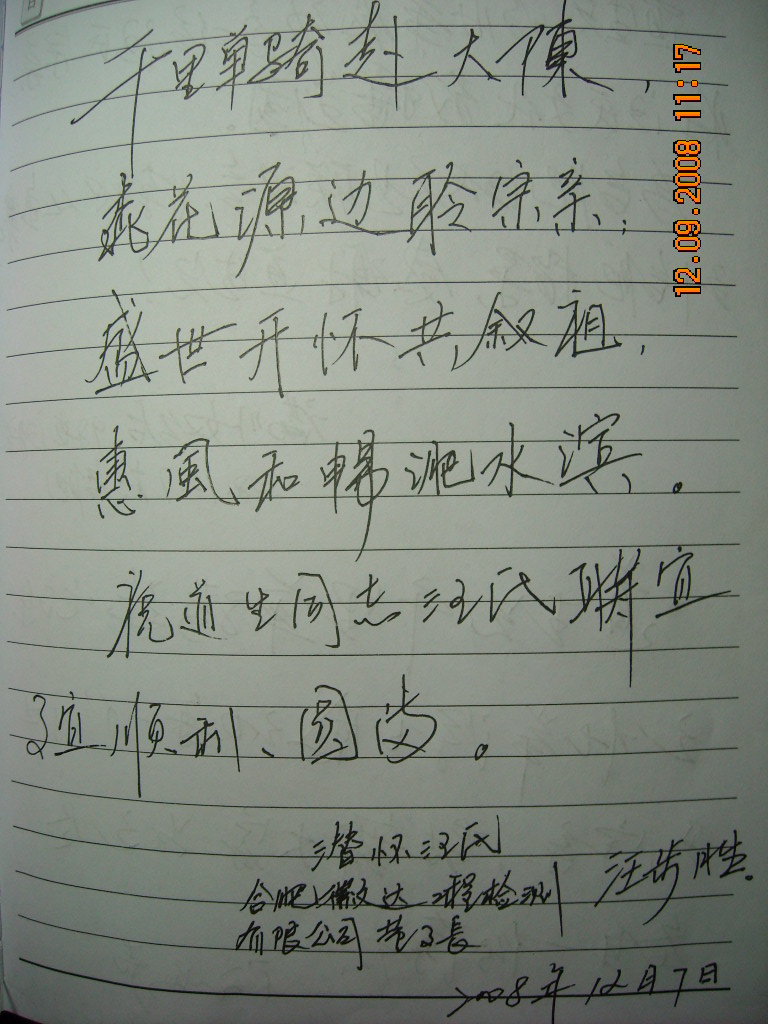 千里单骑赴大陳，
桃花源边聆宗亲；
盛世开怀共叙祖，
惠風和暢淝水滨。
祝道生同志汪氏联宜
顺利、圆满。
潜怀汪氏
合肥 达工程检测
有限公司董事長
汪步胜。
2008年12月7日
12.09.2008 11:17